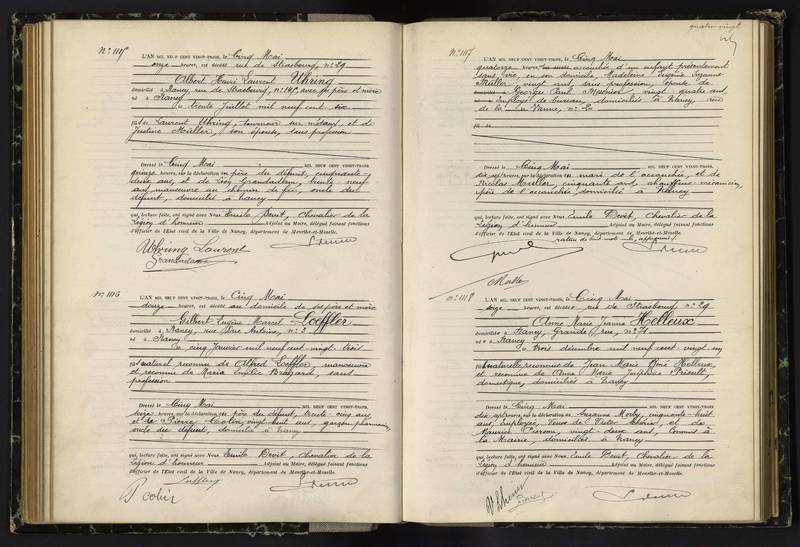 N° 1115
L'AN MIL NEUF CENT VINGT-TROIS, le Cinq Mai
onze heures, est décédé rue de Strasbourg, n° 29
Albert Henri Laurent Uhring
domicilié à Nancy, rue de Strasbourg, n° 145, avec ses père et mère
né à Nancy
le trente juillet mil neuf cent six
fils de Laurent Uhring, tourneur sur métaux, et de
Justine Müller, son épouse, sans profession
Dressé le Cinq Mai MIL NEUF CENT VINGT-TROIS,
quinze heures, sur la déclaration du père du défunt, cinquante-
deux ans, et de Grandadam, trente neuf
ans, manoeuvre au chemin de fer, oncle du
défunt, domiciliés à Nancy
qui, lecture faite, ont signé avec Nous Emile Devit, Chevalier de la
Légion d'honneur Adjoint au Maire, délégué faisant fonctions
d'officier de l'Etat civil de la Ville de Nancy, département de Meurthe-et-Moselle.
Uhring Laurent
Grandadam
N° 1116
L'AN MIL NEUF CENT VINGT-TROIS, le Cinq Mai
douze heures, est décédé au domicile de ses père et mère
Gilbert Eugène Marcel Loeffler
domicilié à Nancy, rue Père Antoine, n° 3
né à Nancy
le cinq Janvier mil neuf cent vingt trois
fils naturel reconnu de Alfred Loeffler, manoeuvre
et reconnu de Maria Emilie, sans
profession
Dressé le Cinq Mai MIL NEUF CENT VINGT-TROIS,
seize heures, sur la déclaration du père du défunt, trente-cinq ans,
et de Pierre Colin, vingt huit ans, garçon pharmacien,
oncle du défunt, domiciliés à Nancy
qui, lecture faite, ont signé avec Nous Emile Devit, Chevalier de la
Légion d'honneur Adjoint au Maire, délégué faisant fonctions
d'officier de l'Etat civil de la Ville de Nancy, département de Meurthe-et-Moselle.
Loeffler
P Colin
quatre-vingt
N° 1117
L'AN MIL NEUF CENT VINGT-TROIS, le Cinq Mai
quatorze heures, est accouchée d'un enfant présentement
sans vie, en son domicile, Madeleine Eugénie Suzanne
Müller vingt ans, sans profession, épouse de
Georges Paul Meunier vingt quatre ans,
employé de bureau, domiciliés à Nancy, rue
de la
Dressé le Cinq Mai MIL NEUF CENT VINGT-TROIS,
dix sept heures, sur la déclaration du mari de l'accouchée, et de
Nicolas Müller, cinquante ans, chauffeur-mécanicien,
père de l'accouchée domiciliés à Nancy
qui, lecture faite, ont signé avec Nous Emile Devit, Chevalier de la
Légion d'honneur Adjoint au Maire, délégué faisant fonctions
d'officier de l'Etat civil de la Ville de Nancy, département de Meurthe-et-Moselle.
N° 1118
L'AN MIL NEUF CENT VINGT-TROIS, le Cinq Mai
seize heures, est décédée rue de Strasbourg n° 29
Anne Marie Jeanne Helleux
domiciliée à Nancy, Grande rue, n° 71
née à Nancy
le trois décembre mil neuf cent vingt un
fille naturelle reconnue de Jean Marie René Helleux
et reconnue de Anne Marie Joséphine,
domestique, domiciliés à Nancy
Dressé le Cinq Mai MIL NEUF CENT VINGT-TROIS,
dix sept heures, sur la déclaration de Suzanne Morly, cinquante-huit
ans, employée, Veuve de Victor, et de
Maurice Pierron, vingt-deux ans, Commis à
la Mairie, domiciliés à Nancy
qui, lecture faite, ont signé avec Nous Emile Devit, Chevalier de la
Légion d'honneur Adjoint au Maire, délégué faisant fonctions
d'officier de l'Etat civil de la Ville de Nancy, département de Meurthe-et-Moselle.